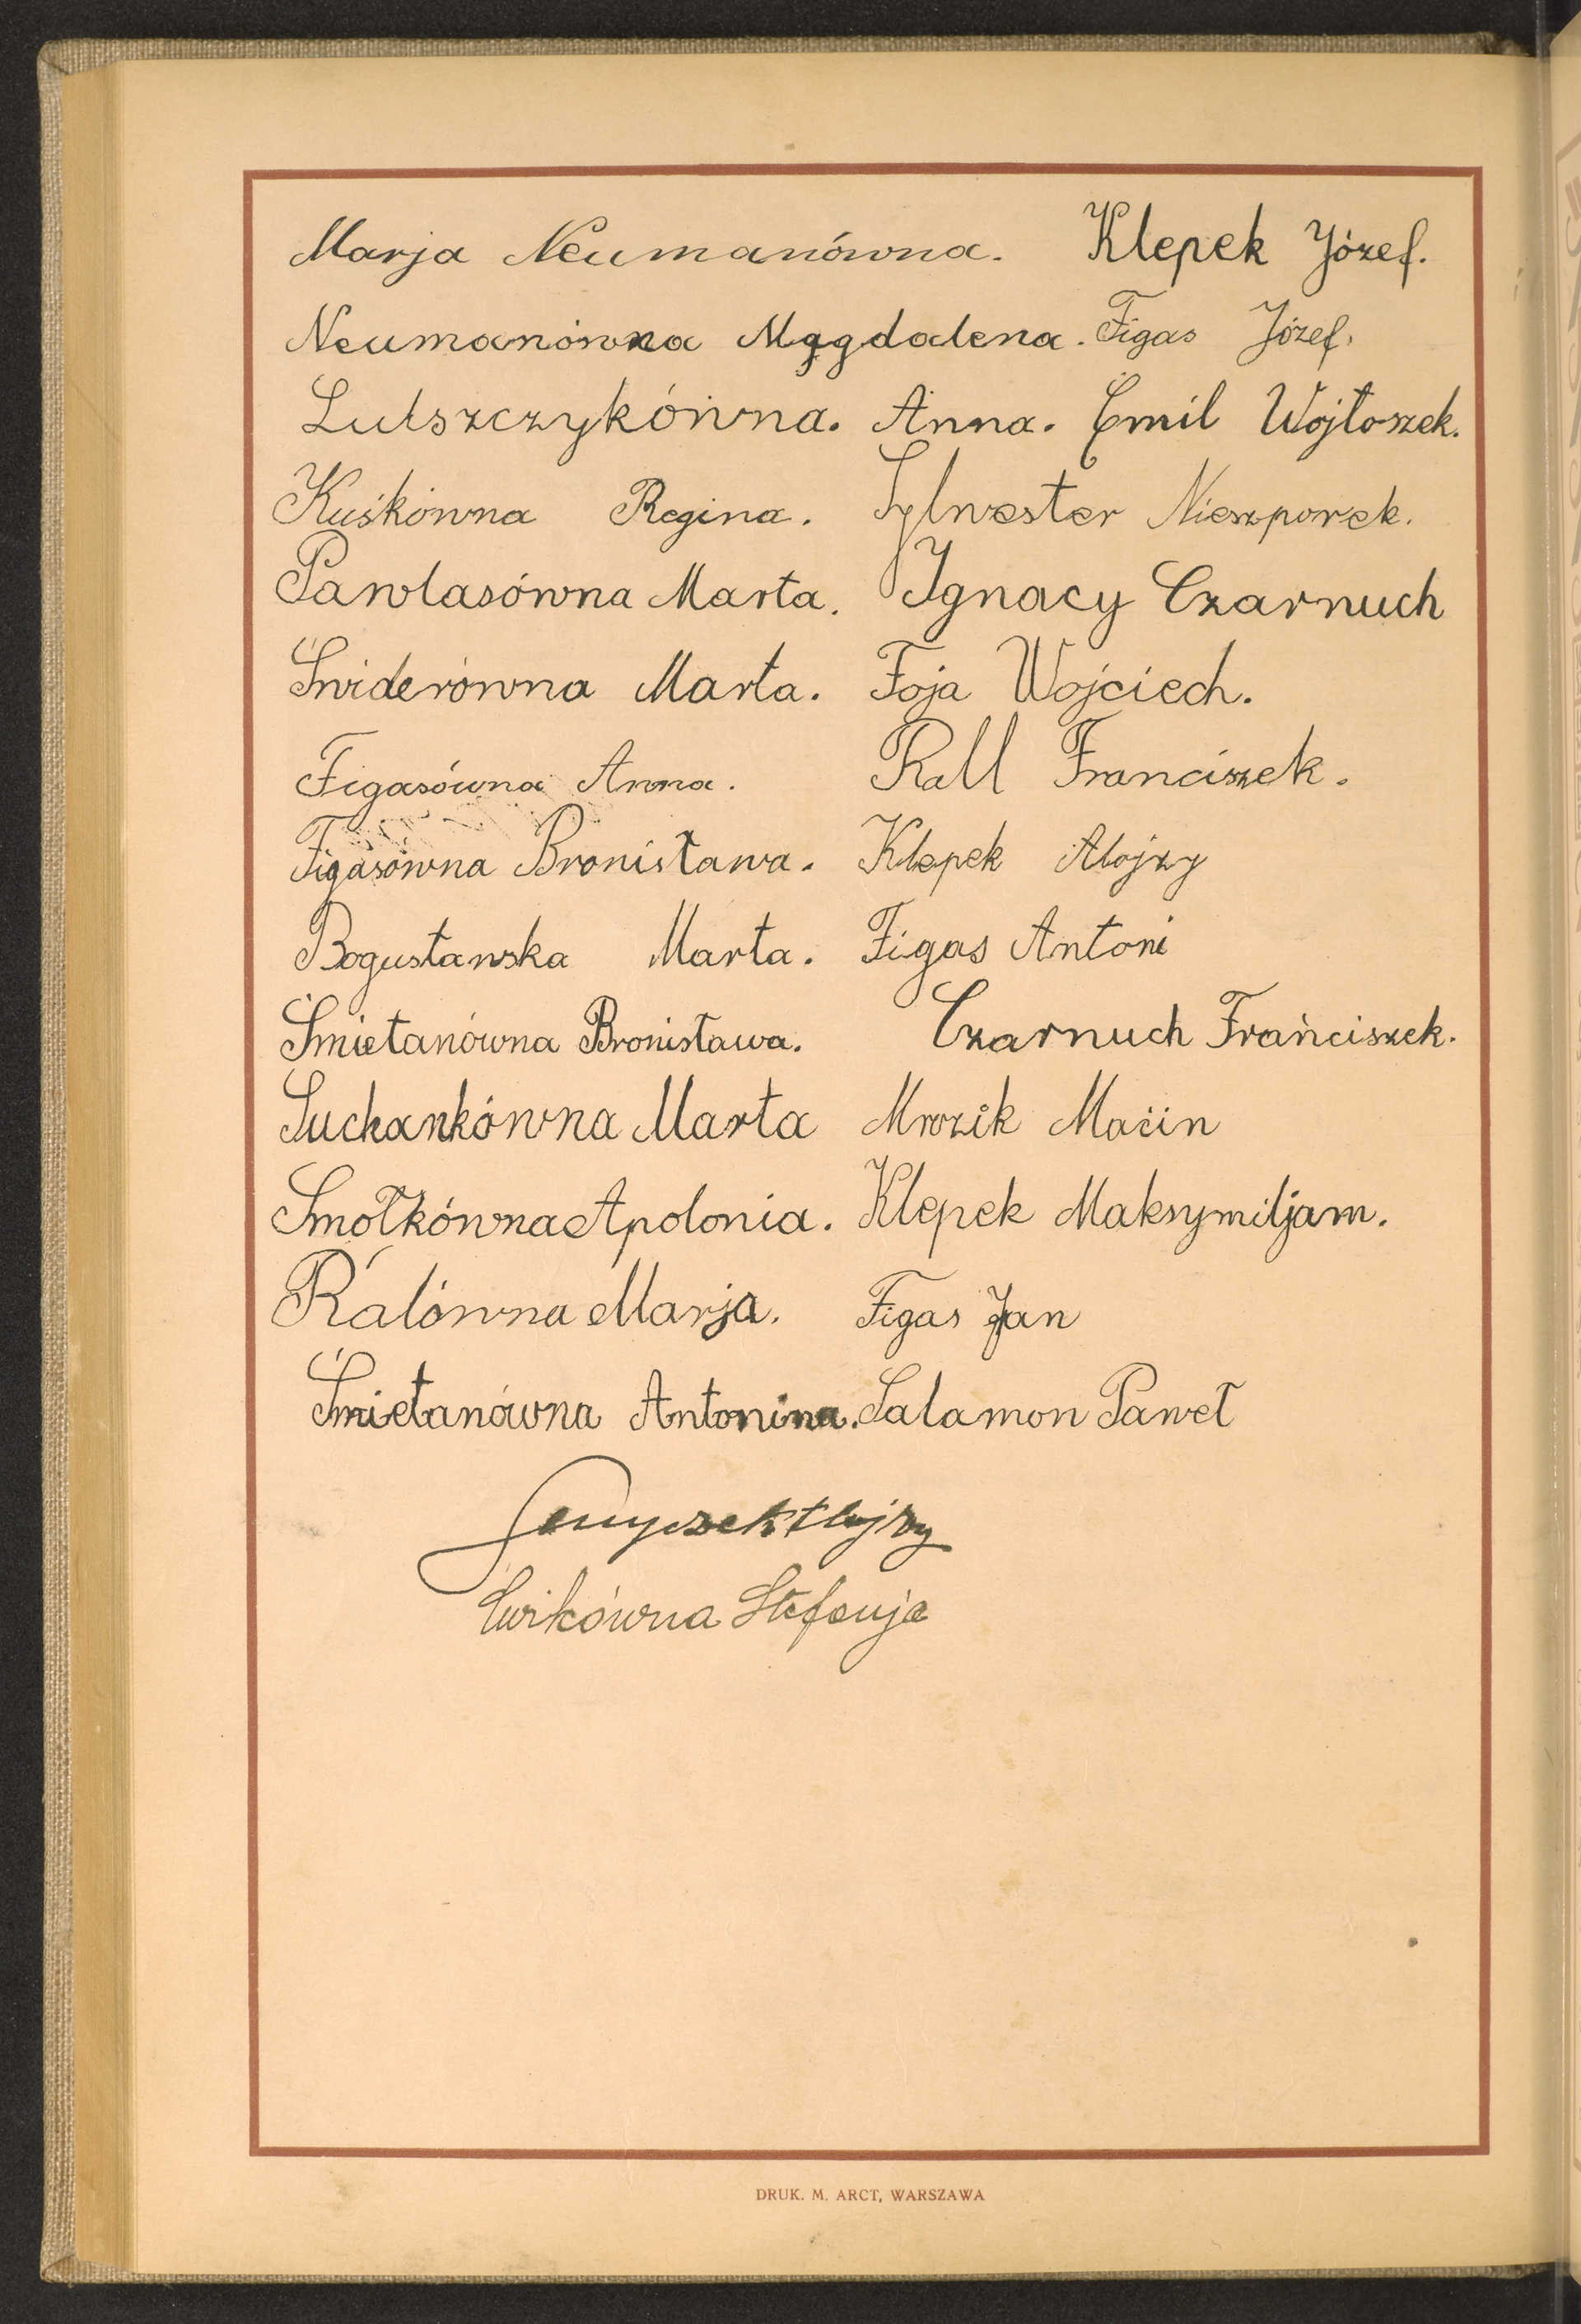 Marja Neumanówna. Klepek Józef.
Neumanówna Magdalena. Figas Józef.
Lulszczykówna. Anna. Emil Wojtoszek.
Kuśkówna Regina. Sylwester Nieszporek.
Pawlasówna Marta. Ignacy Czarnuch
Świderówna Marta. Foja Wojciech.
Figasówna Anna. Rall Franciszek.
Figasówna Bronisława. Klepek Alojzy
Bogusławska Marta. Figas Antoni
Śmietanówna Bronisława. Czarnuch Frańciszek.
Suchankówna Marta Mrozik Maćin
Smołkówna Apolonia. Klepek Maksymiljam.
Ralówna Marja. Figas Jan
Śmietanówna Antonina. Salamon Paweł
Ćwikówna Stefanja
DRUK. M. ARCT, WARSZAWA